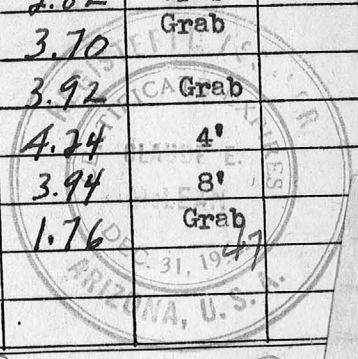 Grab
3.70
3.92 Grab
4.24 4'
3.94 8'
1.76 Grab
CLAUDE E.
DEC. 31, 1947
ARIZONA, U.S.A.